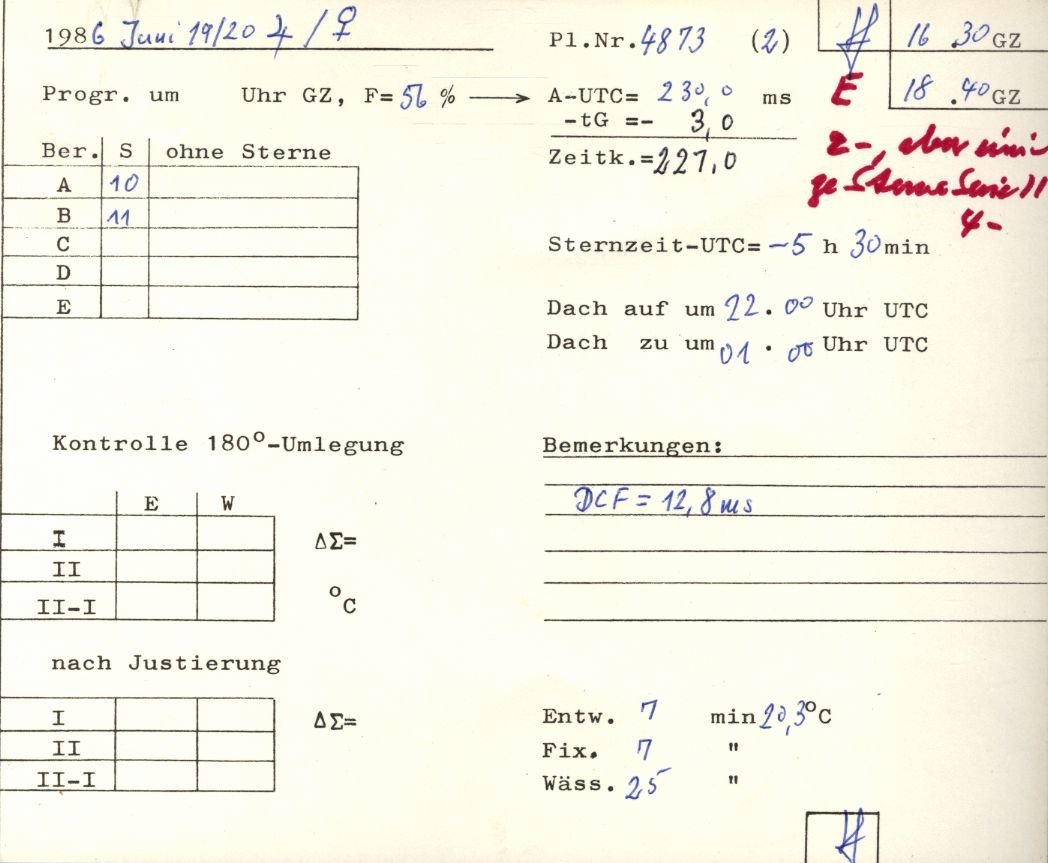 1986 Juni 19/20 ♃ / ♀
Pl.Nr. 4873 (2)
16 .30 GZ
Progr. um Uhr GZ, F= 56 % → A-UTC= 230,0 ms
E 18 .40 GZ
-tG =- 3,0
Zeitk.= 227,0
2-, aber eini-
ge Sterne Serie 11
4-
Ber. S ohne Sterne
A 10
B 11
C
D
E
Sternzeit-UTC= -5 h 30 min
Dach auf um 22. 00 Uhr UTC
Dach zu um 01 . 00 Uhr UTC
Kontrolle 180°-Umlegung
E W
I ΔΣ=
II
II-I °C
nach Justierung
I ΔΣ=
II
II-I
Bemerkungen:
DCF = 12,8 ms
Entw. 7 min 20,3°C
Fix. 7 "
Wäss. 25 "